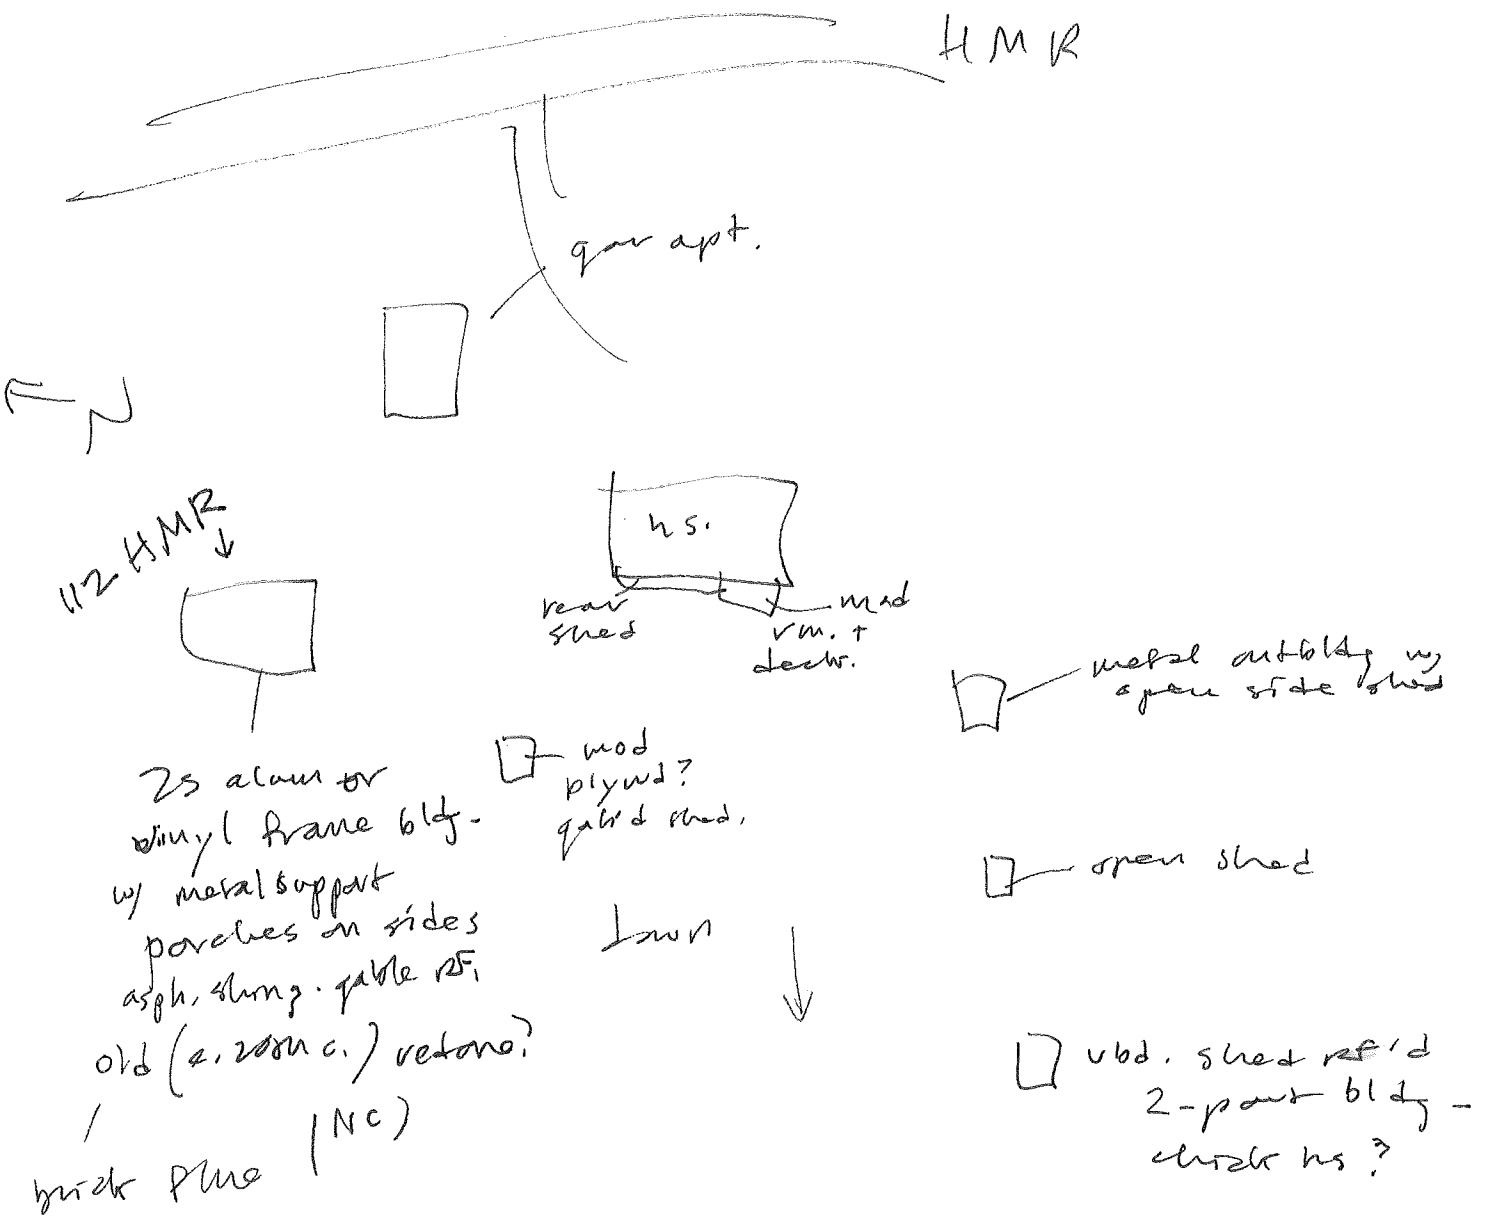 HMR
gar apt.
N
112 HMR
hs.
rear
shed
mod
rm. +
deck.
metal outbldg w/
open side shed
mod
plywd?
gab'd shed.
2s alum or
vinyl frame bldg.
w/ metal support
porches on sides
asph. shing. gable rf.
old (e. 20th c.) redone?
brick flue (NC)
open shed
vbd. shed rf'd
2-part bldg -
chick hs?